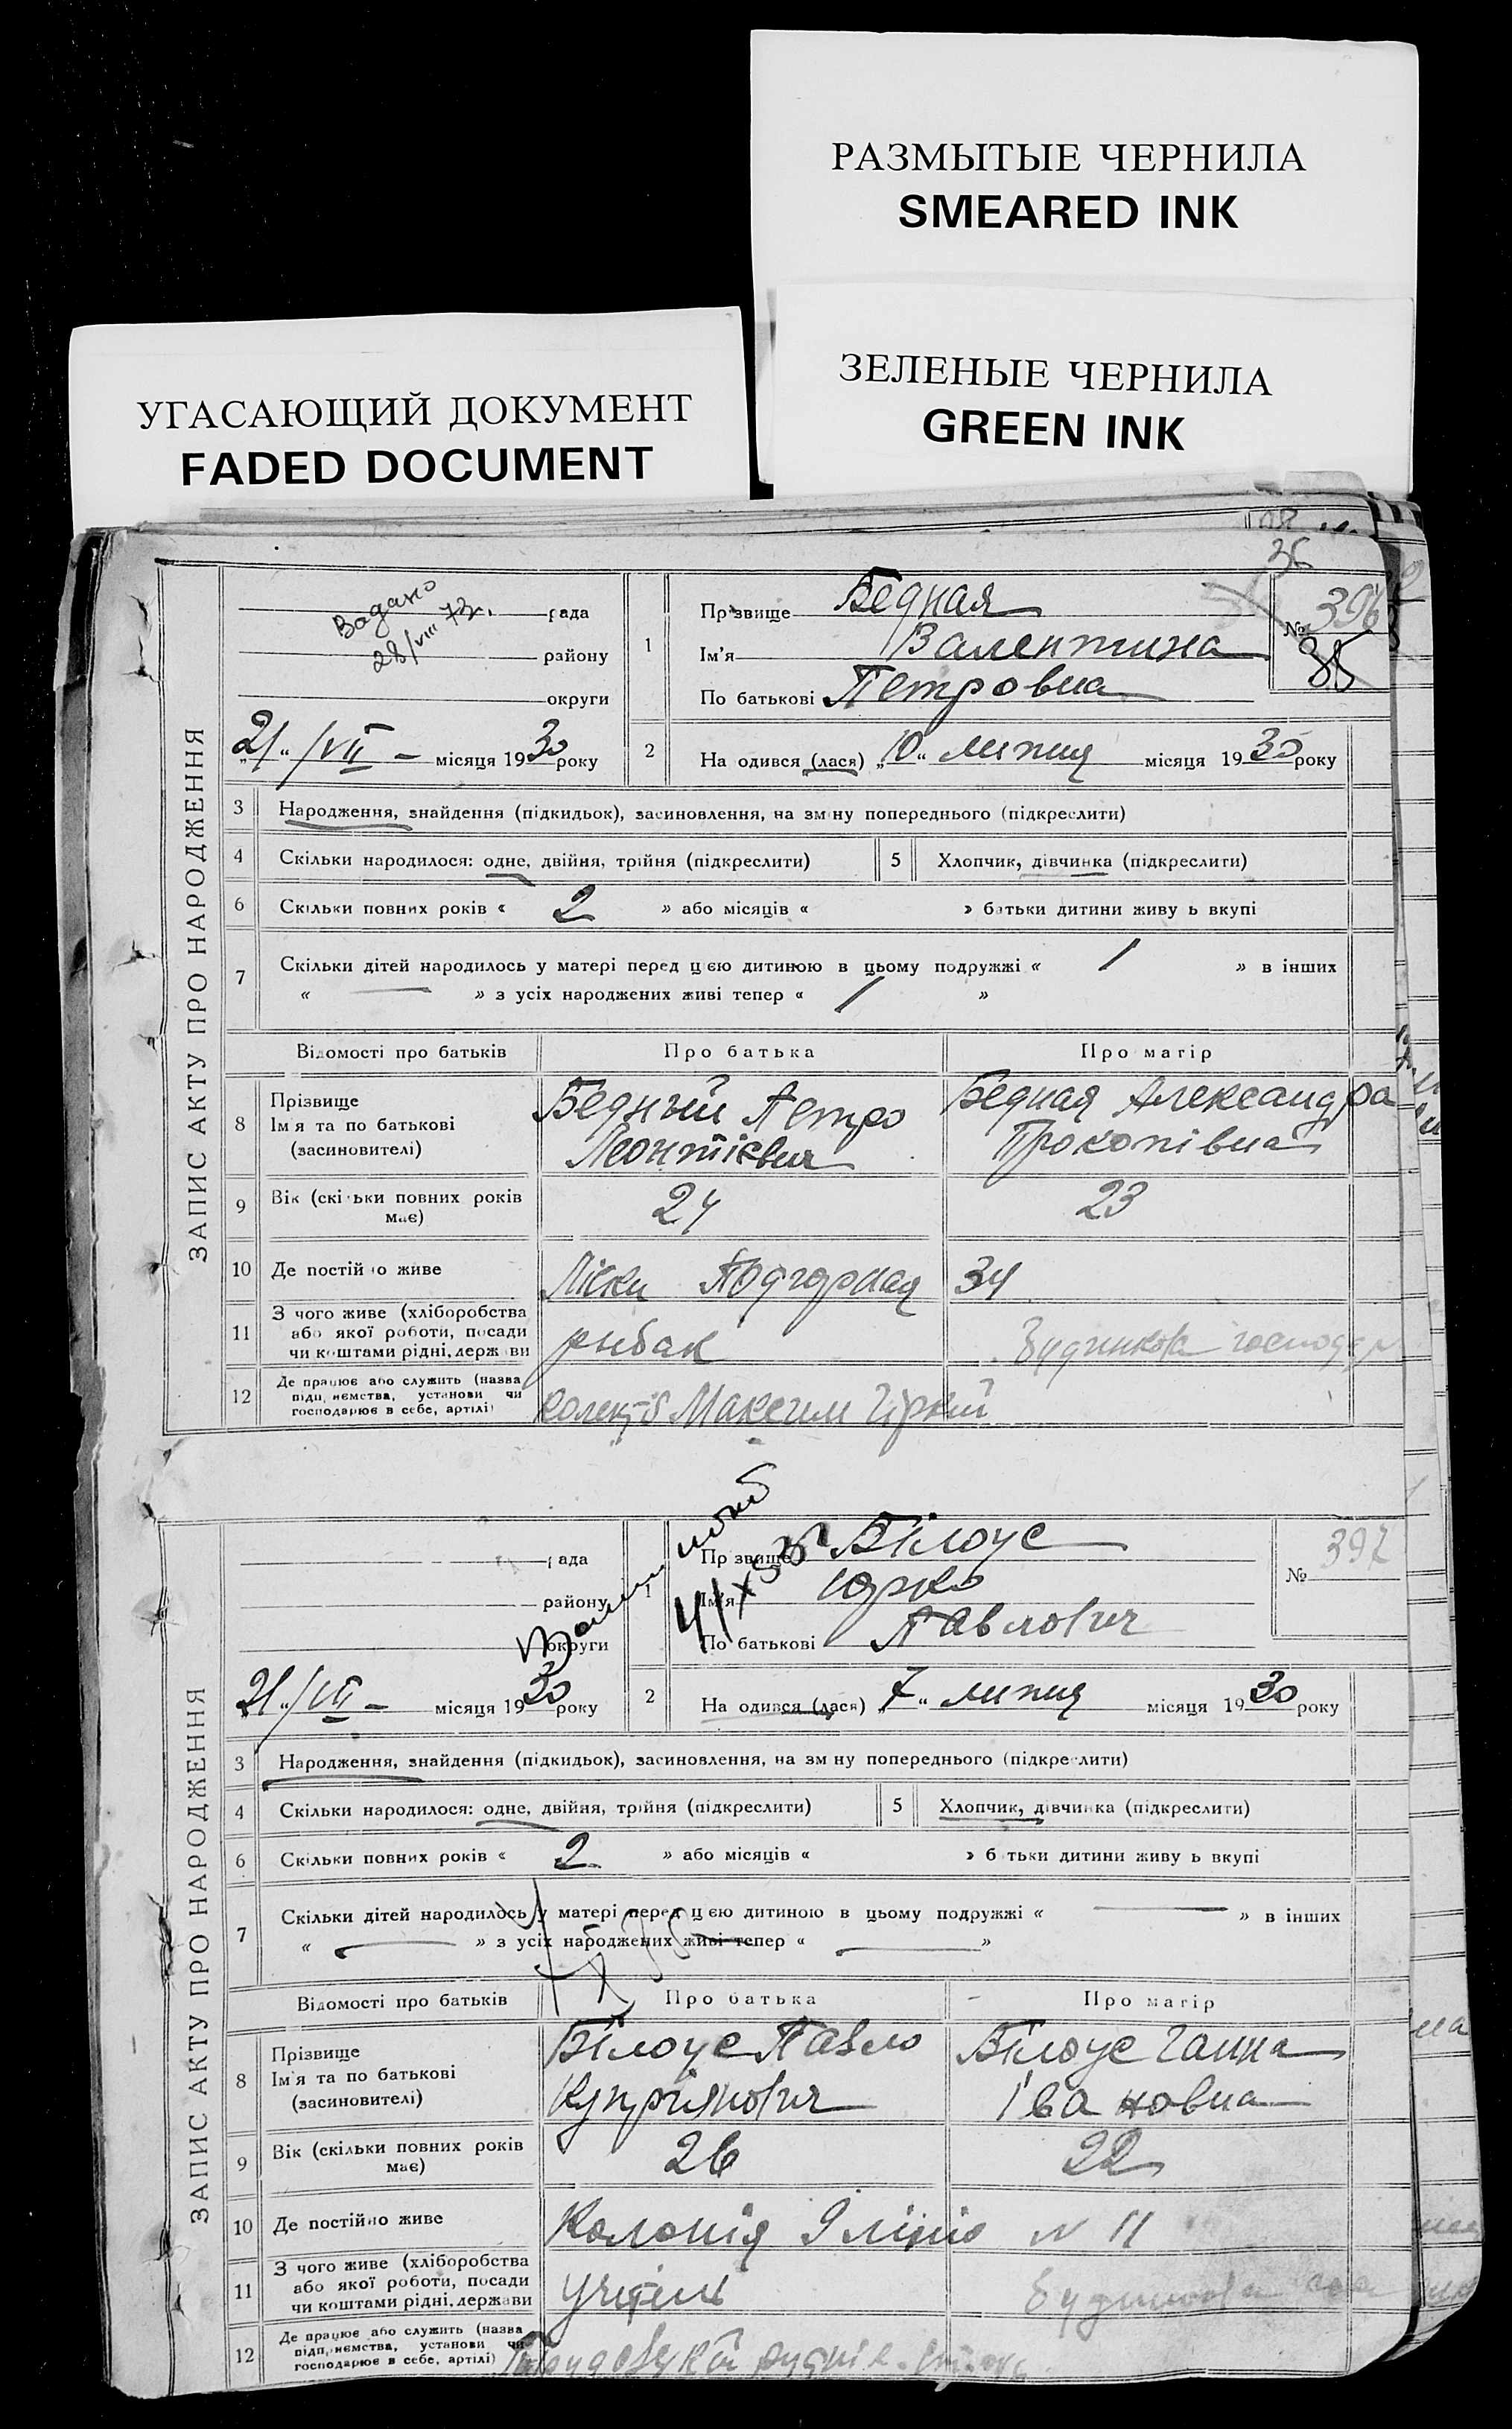 РАЗМЫТЫЕ ЧЕРНИЛА
SMEARED INK
ЗЕЛЕНЫЕ ЧЕРНИЛА
GREEN INK
УГАСАЮЩИЙ ДОКУМЕНТ
FADED DOCUMENT
36
ЗАПИС АКТУ ПРО НАРОДЖЕННЯ
28/VIII 73г.
рада
району
округи
„21“/VII – місяця 1930 року
1
Прізвище Бедная
Ім'я Валентина
По батькові Петровна
№ 396
85
2
Народився (лася) „10“ липня місяця 1930 року
3 Народження, знайдення (підкидьок), засиновлення, на зміну попереднього (підкреслити)
4 Скільки народилося: одне, двійня, трійня (підкреслити)
5 Хлопчик, дівчинка (підкреслити)
6 Скільки повних років « 2 » або місяців « » батьки дитини живуть вкупі
7 Скільки дітей народилось у матері перед цією дитиною в цьому подружжі « 1 » в інших
« — » з усіх народжених живі тепер « 1 »
Відомості про батьків Про батька Про матір
8 Прізвище
Ім'я та по батькові
(засиновителі)
Бедный Петро
Леонтієвич
Бедная Александра
Прокопівна
9 Вік (скільки повних років
має)
24 23
10 Де постійно живе Ліски Подгорная 34
11 З чого живе (хліборобства
або якої роботи, посади
чи коштами рідні, держави
рибак Будинкова господар
12 Де працює або служить (назва
підприємства, установи чи
господарює в себе, артілі)
колектів Максим Гіркій
ЗАПИС АКТУ ПРО НАРОДЖЕННЯ
рада
району
округи
„21“/VII – місяця 1930 року
1
Прізвище Білоус
Ім'я Юрко
По батькові Павлович
№ 397
2
Народився (лася) „7“ липня місяця 1930 року
3 Народження, знайдення (підкидьок), засиновлення, на зміну попереднього (підкреслити)
4 Скільки народилося: одне, двійня, трійня (підкреслити)
5 Хлопчик, дівчинка (підкреслити)
6 Скільки повних років « 2 » або місяців « » батьки дитини живуть вкупі
7 Скільки дітей народилось у матері перед цією дитиною в цьому подружжі « — » в інших
« — » з усіх народжених живі тепер « — »
Відомості про батьків Про батька Про матір
8 Прізвище
Ім'я та по батькові
(засиновителі)
Білоус Павло
Купріянович
Білоус Ганна
Івановна
9 Вік (скільки повних років
має)
26 22
10 Де постійно живе Колонія N 11
11 З чого живе (хліборобства
або якої роботи, посади
чи коштами рідні, держави
учитель
12 Де працює або служить (назва
підприємства, установи чи
господарює в себе, артілі)